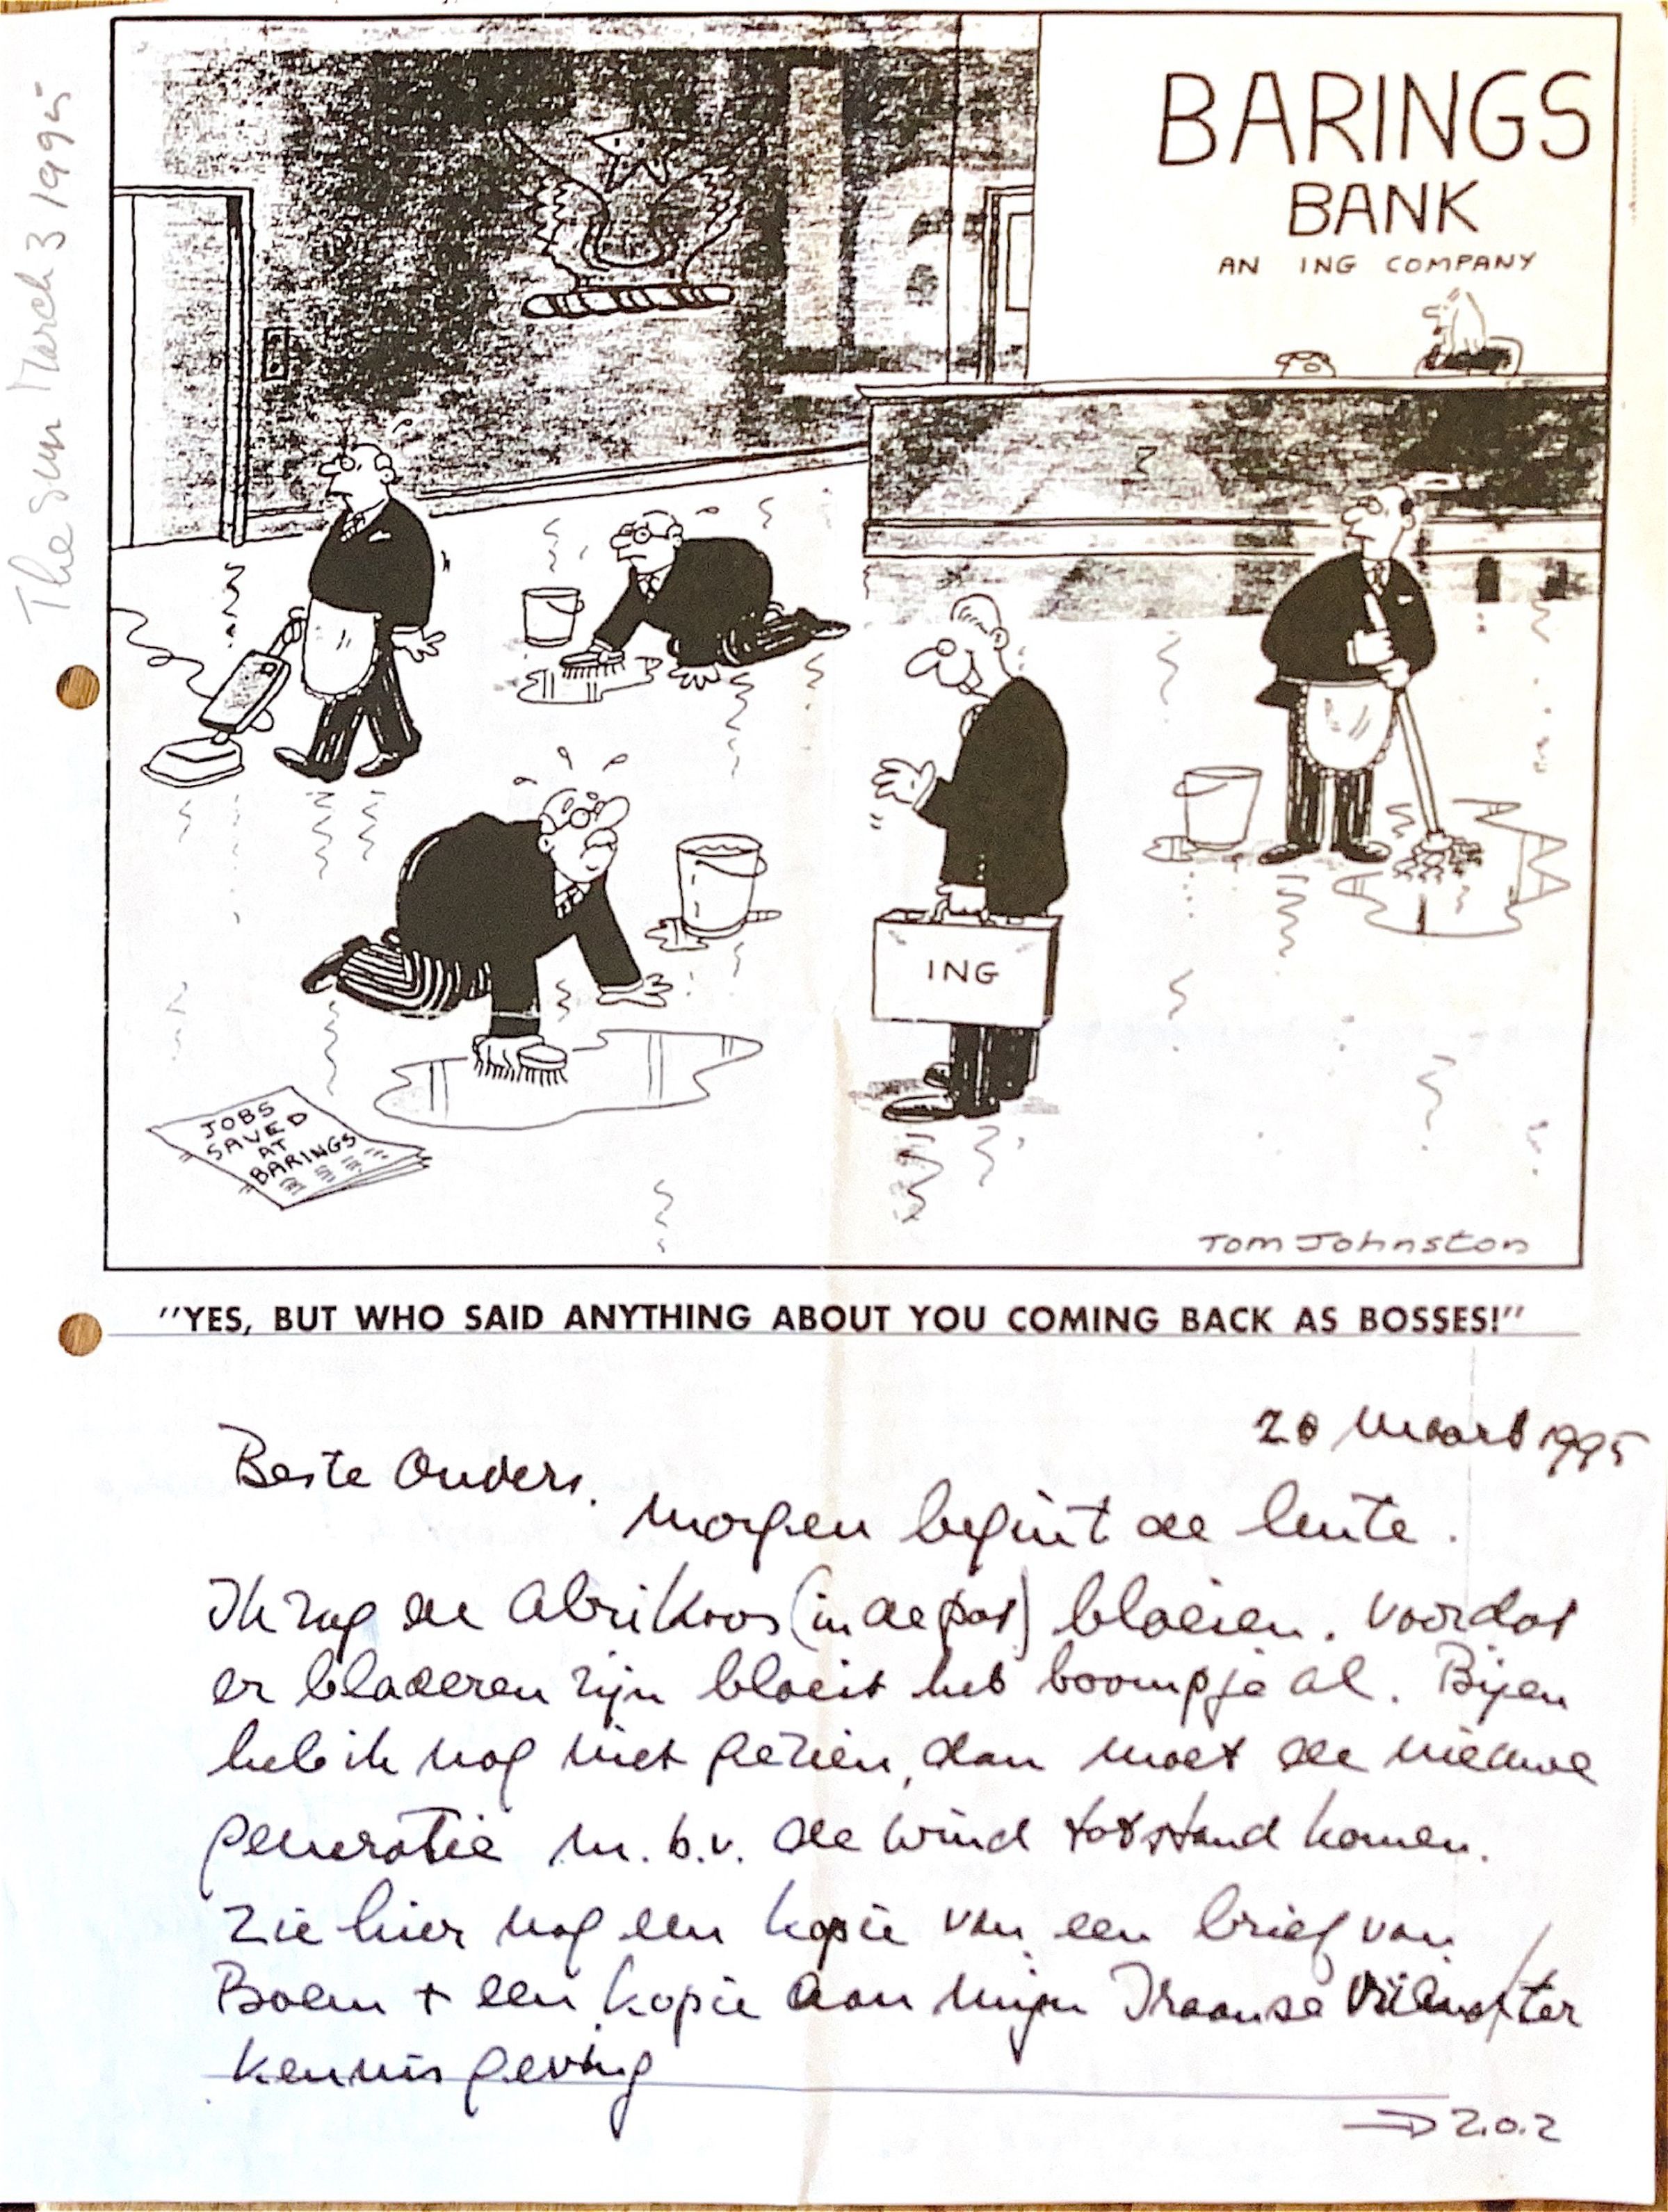 The Sun March 3 1995
BARINGS
BANK
AN ING COMPANY
ING
JOBS
SAVED
AT
BARINGS
Tom Johnston
"YES, BUT WHO SAID ANYTHING ABOUT YOU COMING BACK AS BOSSES!"
20 Maart 1995
Beste Ouders.
Morgen begint de lente.
Ik zag de Abrikoos (in de pot) bloeien. Voordat
er bladeren zijn bloeit het boompje al. Bijen
heb ik nog niet gezien, dan moet de nieuwe
generatie m.b.v. de wind totstand komen.
Zie hier nog een kopie van een brief van
Boen + een kopie aan mijn Iraanse vriend / ter
kennisgeving
Z.O.Z